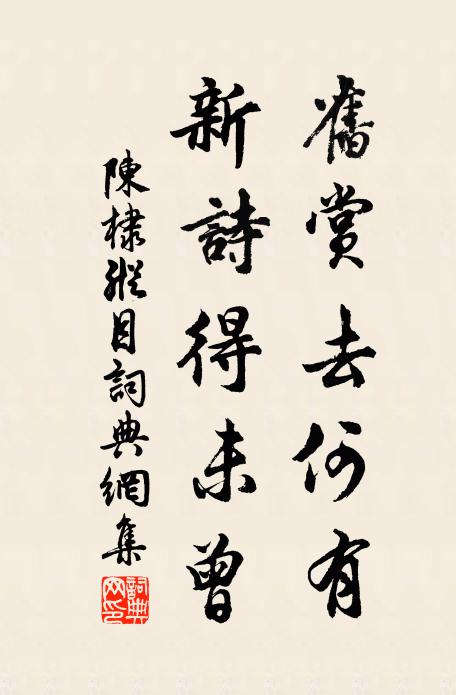 舊賞去何有
新詩得未曾
陳棣縱目詞典網集
詞典網印